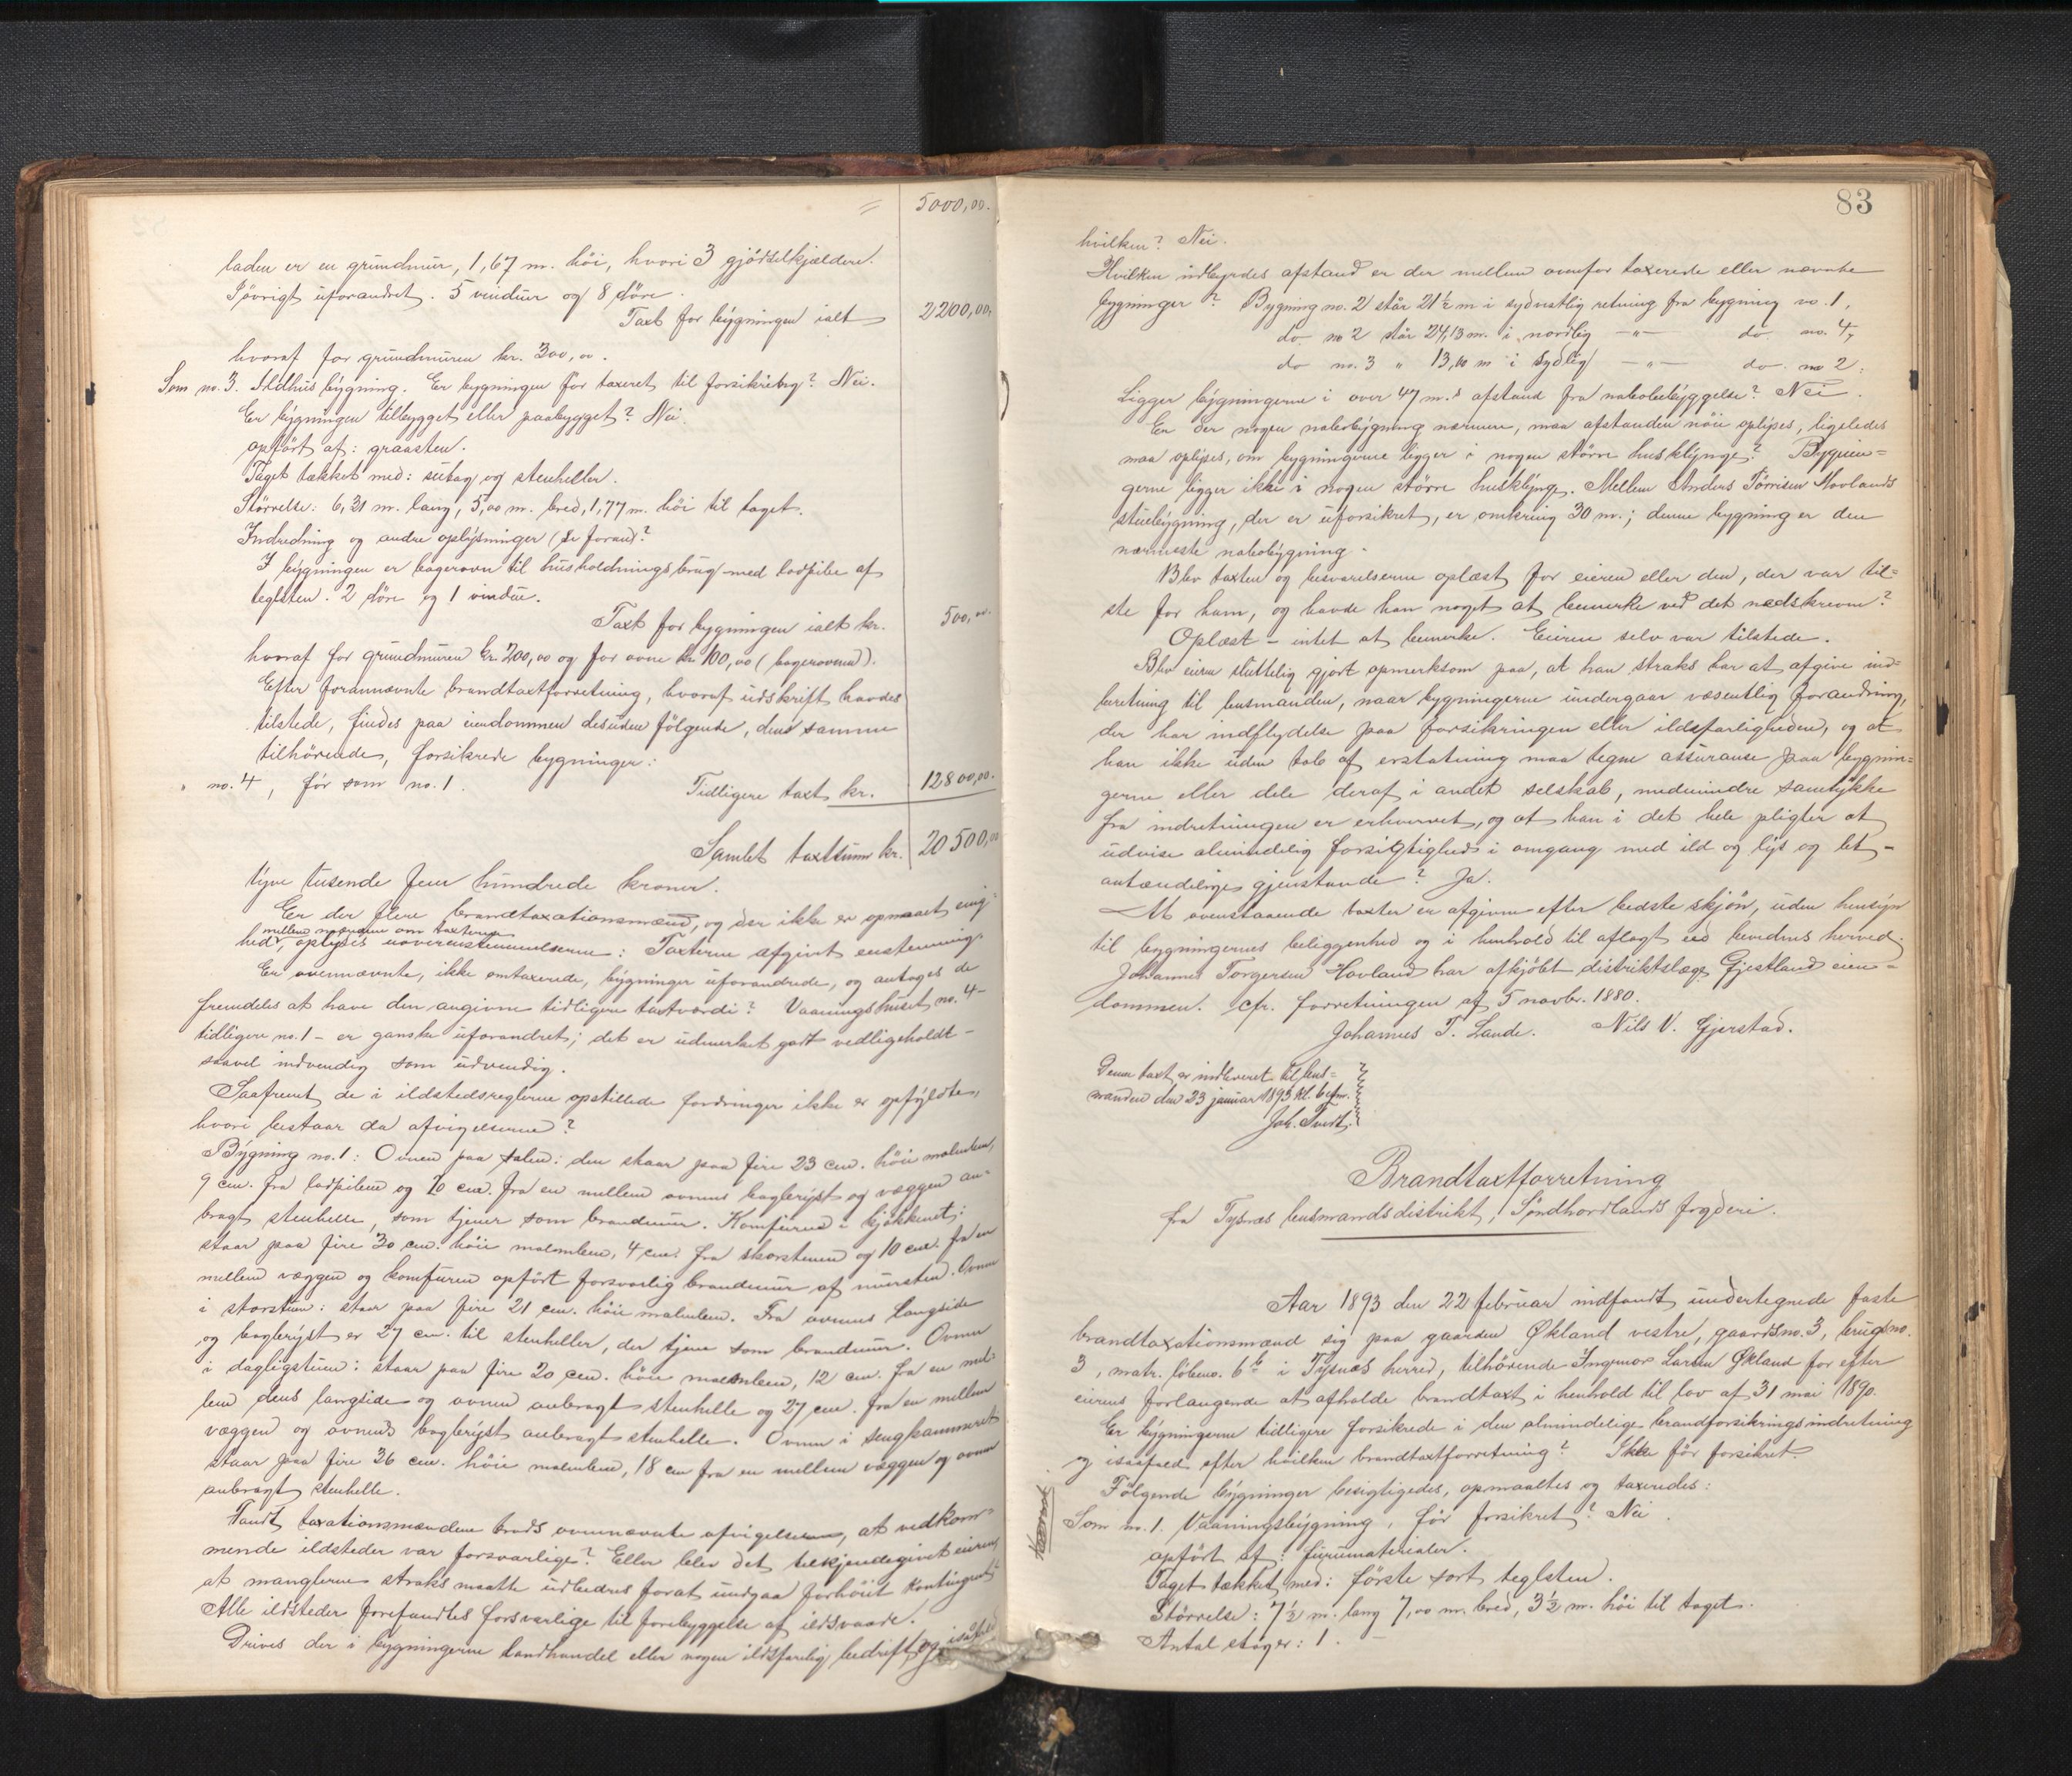 = 5000,00.
laden er en grundmur, 1,67 m. höi, hvori 3 gjödselkjældere.
Iövrigt uforandret. 5 vinduer og 8 döre.
Taxt for bygningen ialt 2200,00.
hvoraf for grundmuren kr. 300,00.
Som no. 3. Ildhusbygning. Er bygningen för taxeret til forsikring? Nei.
Er bygningen tilbygget eller paabygget? Nei.
opfört af: graasten.
Taget tækket med: sutag og stenheller.
Störrelse: 6,31 m. lang, 5,00 m. bred, 1,77 m. höi til taget.
Indredning og andre oplysninger (se foran)?
I bygningen er bagerovn til husholdningsbrug med lodpibe af
teglsten. 2 döre og 1 vindu.
Taxt for bygningen ialt kr. 500,00.
hvoraf for grundmuren kr. 200,00 og for ovne kr. 100,00 (bagerovnen).
Efter forannævnte brandtaxtforretning, hvoraf udskrift havdes
tilstede, findes paa eiendommen desuden følgende, den samme
tilhörende, forsikrede bygninger:
no. 4, för som no. 1. Tidligere taxt kr. 12800,00.
Samlet taxtsum kr. 20500,00
tyve tusende fem hundrede kroner.
Er der flere brandtaxationsmænd, og der ikke er opnaaet enig-
mellem mændene om taxterne
hed, oplyses uoverensstemmelserne: Taxterne afgivet enstemmig.
Er ovennævnte, ikke omtaxerede, bygninger uforandrede, og antages de
fremdeles at have den angivne tidligere taxtværdi? Vaaningshuset no. 4 -
tidligere no. 1 - er ganske uforandret; det er udmerket godt vedligeholdt -
saavel indvendig som udvendig.
Saafremt de i ildstedsreglerne opstillede fordringer ikke er opfyldte,
hvori bestaar da afvigelserne?
Bygning no. 1: Ovnen paa salen: den staar paa fire 23 cm. höie malmben,
9 cm. fra lodpiben og 20 cm. fra en mellem ovnens bagbryst og væggen an-
bragt stenhelle, som tjener som brandmur. Komfuren i kjökkenet:
staar paa fire 30 cm. höie malmben, 4 cm. fra skorstenen og 10 cm. fra en
mellem væggen og komfuren opfört forsvarlig brandmur af mursten. Ovnen
i storstuen: staar paa fire 21 cm. höie malmben. Fra ovnens langside
og bagbryst er 27 cm. til stenheller, der tjene som brandmur. Ovnen
i dagligstuen: staar paa fire 20 cm. höie malmben, 12 cm. fra en mel-
lem dens langside og ovnen anbragt stenhelle og 27 cm. fra en mellem
væggen og ovnens bagbryst anbragt stenhelle. Ovnen i sengkammeret
staar paa fire 36 cm. höie malmben, 18 cm fra en mellem væggen og ovnen
anbragt stenhelle.
Fandt taxationsmændene trods ovennævnte afvigelser, at vedkom-
mende ildsteder var forsvarlige? Eller blev det tilkjendegivet eieren,
at manglerne straks maatte udbedres forat undgaa forhöiet kontingent?
Alle ildsteder forefandtes forsvarlige til forebyggelse af ildsvaade.
Drives der i bygningerne landhandel eller nogen ildsfarlig bedrift, og isåfald
83
hvilken? Nei.
Hvilken indbyrdes afstand er der mellem ovenfor taxerede eller nævnte
bygninger? Bygning no. 2 står 21½ m i sydvestlig retning fra bygning no. 1.
do no 2 står 24,13 m. i nordlig -"- do. no. 4,
do no. 3 " 13,10 m i sydlig -"- do. no 2.
Ligger bygningerne i over 47 m.s afstand fra nabobebyggelse? Nei.
Er der nogen nabobygning nærmere, maa afstanden nöie oplyses, ligeledes
maa oplyses, om bygningerne ligger i nogen större husklynge? Bygnin-
gerne ligger ikke i nogen större husklynge. Mellem Anders Törrisen Hovlands
stuebygning, der er uforsikret, er omkring 30 m.; denne bygning er den
nærmeste nabobygning.
Blev taxten og besvarelserne oplæst for eieren eller den, der var til-
ste for ham, og havde han noget at bemerke ved det nedskrevne?
Oplæst - intet at bemerke. Eieren selv var tilstede.
Blev eieren sluttelig gjort opmerksom paa, at han straks har at afgive ind-
beretning til lensmanden, naar bygningerne undergaar væsentlig forandring,
der har indflydelse paa forsikringen eller ildsfarligheden, og at
han ikke uden tab af erstatning maa tegne assuranse paa bygnin-
gerne eller dele deraf i andet selskab, medmindre samtykke
fra indretningen er erhvervet, og at han i det hele pligter at
udvise almindelig forsigtighed i omgang med ild og lys og let-
antændelige gjenstande? Ja.
At ovenstaaende taxter er afgivne efter bedste skjön, uden hensyn
til bygningernes beliggenhed og i henhold til aflagt ed bevidnes herved.
Johannes Torgersen Hovland har afkjöbt distriktslæge Gjestland eien-
dommen. cfr. forretningen af 5 novbr. 1880.
Johannes T. Lande. Nils V. Gjerstad.
Denne taxt er indleveret til lens-
manden den 23 januar 1893 kl. 6 efm.
Joh. Tveit.
Brandtaxtforretning
fra Tysnæs lensmandsdistrikt, Söndhordlands fogderi.
Aar 1893 den 22 februar indfandt undertegnede faste
brandtaxationsmænd sig paa gaarden Økland vestre, gaardsno. 3, brugsno.
3, matr. löbeno. 6b i Tysnæs herred, tilhörende Ingmor Larsen Økland for efter
eierens forlangende at afholde brandtaxt i henhold til lov af 31 mai 1890.
Er bygningerne tidligere forsikrede i den almindelige brandforsikringsindretning
og isaafald efter hvilken brandtaxtforretning? Ikke för forsikret.
Fölgende bygninger besigtigedes, opmaaltes og taxeredes:
Som no. 1. Vaaningsbygning, för forsikret? Nei.
opfört af: furumaterialer.
Taget tækket med: förste sort teglsten.
Störrelse: 7½ m. lang 7,00 m. bred, 3½ m. höi til taget.
Antal etager: 1.